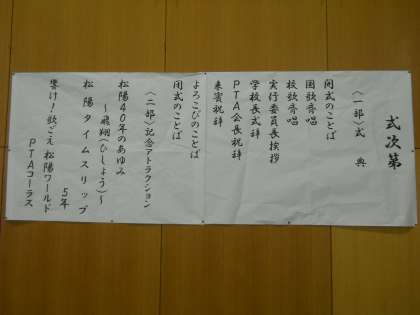 式次第
〈一部〉式 典
開式のことば
国歌斉唱
校歌斉唱
実行委員長挨拶
学校長式辞
PTA会長祝辞
来賓祝辞
よろこびのことば
閉式のことば
〈二部〉記念アトラクション
松陽40年のあゆみ
～飛翔(ひしょう)～
松陽タイムスリップ
5年
響け!歌ごえ 松陽ワールド
PTAコーラス